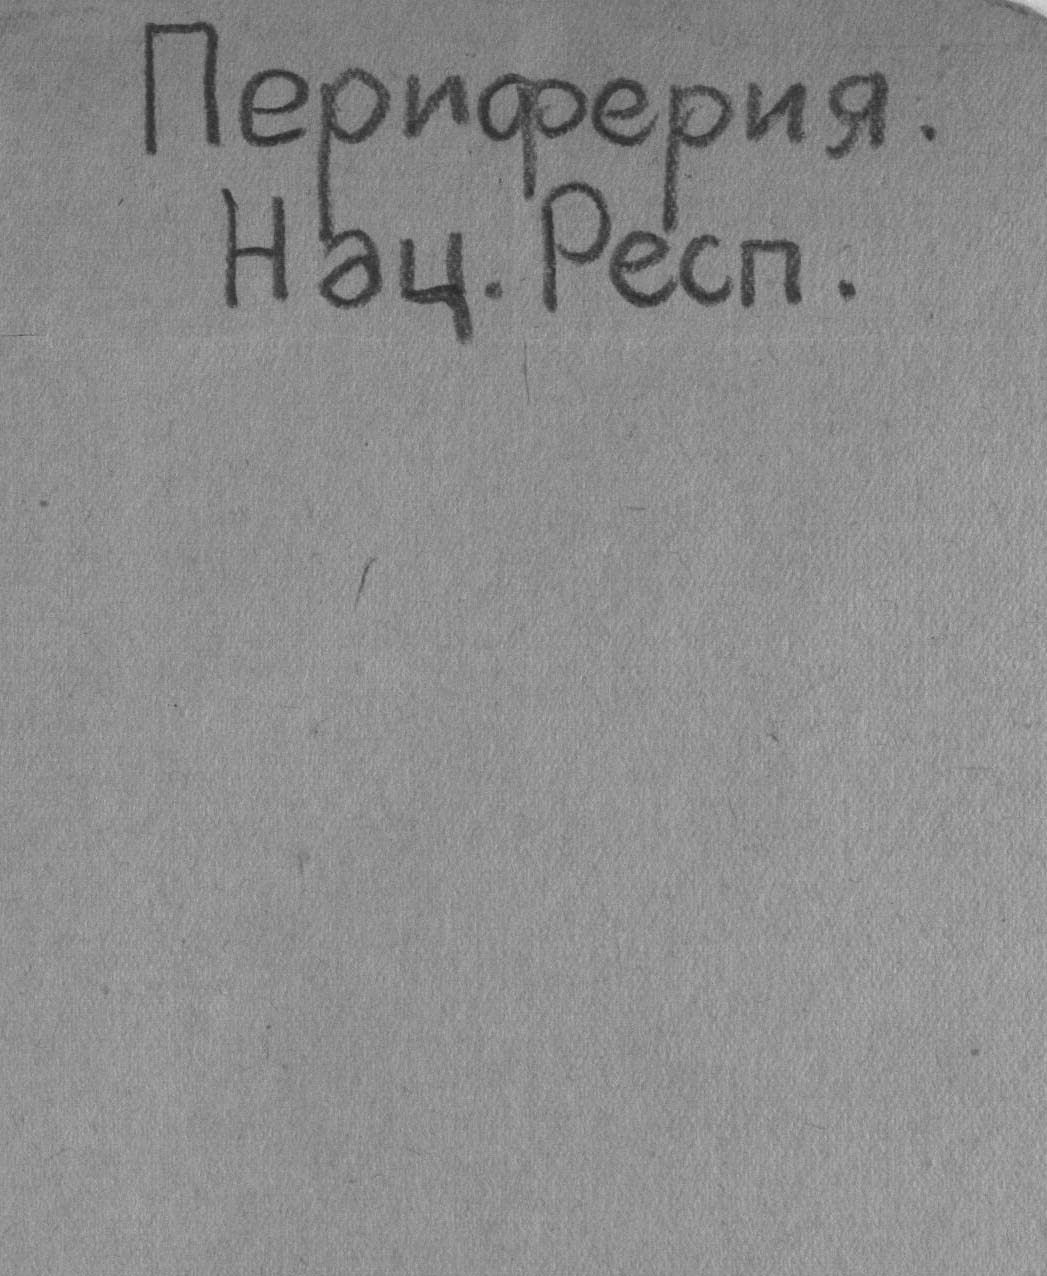 Периферия.
Нац. Респ.